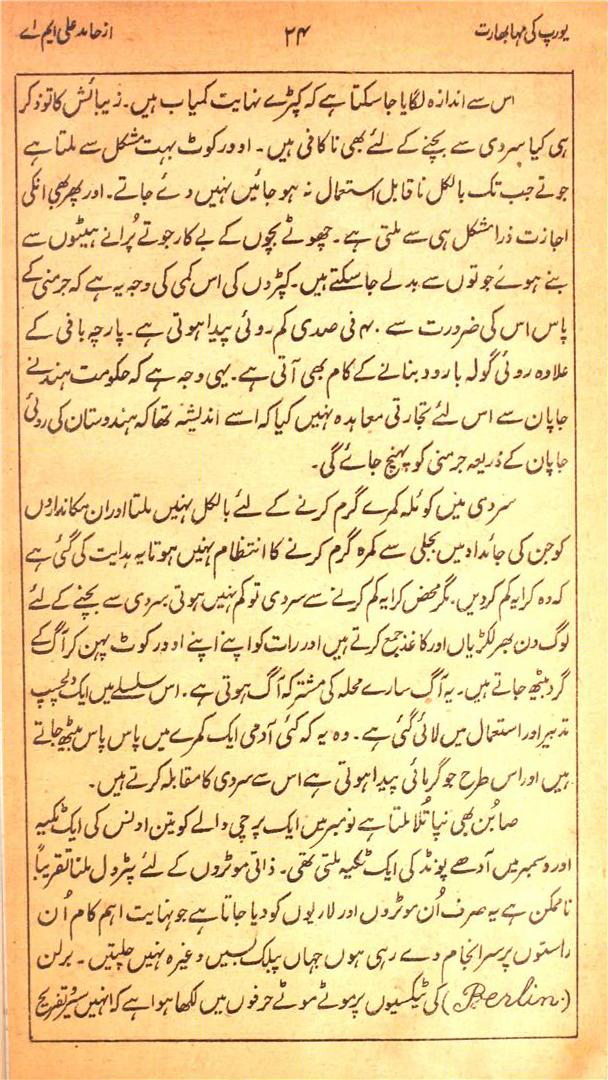 یورپ کی مہابھارت
۲۴
از حامد علی ایم اے
اس سے اندازہ لگایا جا سکتا ہے کہ کپڑے نہایت کمیاب ہیں۔ زیبائش کا تو ذکر
ہی کیا سردی سے بچنے کے لئے بھی ناکافی ہیں۔ اوورکوٹ بہت مشکل سے ملتا ہے
جوتے جب تک بالکل ناقابل استعمال نہ ہو جائیں نہیں دئے جاتے۔ اور پھر بھی انکی
اجازت ذرا مشکل ہی سے ملتی ہے۔ چھوٹے بچوں کے بے کار جوتے پُرانے ہیٹوں سے
بنے ہوئے جوتوں سے بدلے جا سکتے ہیں۔ کپڑوں کی اس کمی کی وجہ یہ ہے کہ جرمنی کے
پاس اس کی ضرورت سے ۴۰ فی صدی کم روئی پیدا ہوتی ہے۔ پارچہ بافی کے
علاوہ روئی گولہ بارود بنانے کے کام بھی آتی ہے۔ یہی وجہ ہے کہ حکومت ہند نے
جاپان سے اس لئے تجارتی معاہدہ نہیں کیا کہ اسے اندیشہ تھا کہ ہندوستان کی روئی
جاپان کے ذریعہ جرمنی کو پہنچ جائے گی۔
سردی میں کوئلہ کمرے گرم کرنے کے لئے بالکل نہیں ملتا اور ان مکانداروں
کو جن کی جائداد میں بجلی سے کمرہ گرم کرنے کا انتظام نہیں ہوتا یہ ہدایت کی گئی ہے
کہ وہ کرایہ کم کردیں۔ مگر محض کرایہ کم کرنے سے سردی تو کم نہیں ہوتی سردی سے بچنے کے لئے
لوگ دن بھر لکڑیاں اور کاغذ جمع کرتے ہیں اور رات کو اپنے اپنے اوورکوٹ پہن کر آگ کے
گرد بیٹھ جاتے ہیں۔ یہ آگ سارے محلہ کی مشترکہ آگ ہوتی ہے۔ اس سلسلے میں ایک دلچسپ
تدبیر اور استعمال میں لائی گئی ہے۔ وہ یہ کہ کئی آدمی ایک کمرے میں پاس پاس بیٹھ جاتے
ہیں اور اس طرح جو گرمائی پیدا ہوتی ہے اس سے سردی کا مقابلہ کرتے ہیں۔
صابُن بھی نپا تُلا ملتا ہے نومبر میں ایک پرچی والے کو تین اونس کی ایک ٹکیہ
اور دسمبر میں آدھے پونڈ کی ایک ٹکیہ ملتی تھی۔ ذاتی موٹروں کے لئے پٹرول ملنا تقریباً
ناممکن ہے یہ صرف اُن موٹروں اور لاریوں کو دیا جاتا ہے جو نہایت اہم کام اُن
راستوں پر سرانجام دے رہی ہوں جہاں پبلک بسیں وغیرہ نہیں چلتیں۔ برلن
(Berlin.) کی ٹیکسیوں پر موٹے موٹے حرفوں میں لکھا ہوا ہے کہ انہیں سیر و تفریح